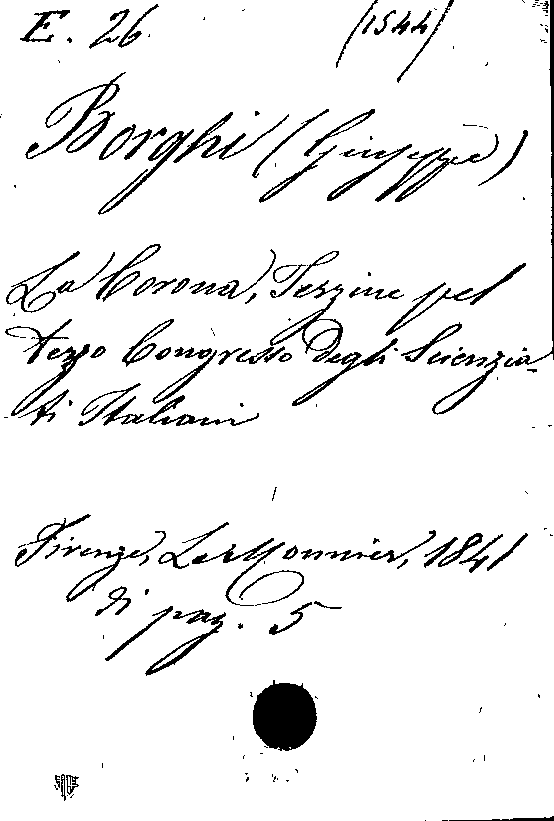 E. 26 (1544)
Borghi (Giuseppe)
La Corona, Terzine pel
terzo Congresso Degli Scienzia-
ti Italiani
Firenze, Le Monnier, 1841
di pag. 5